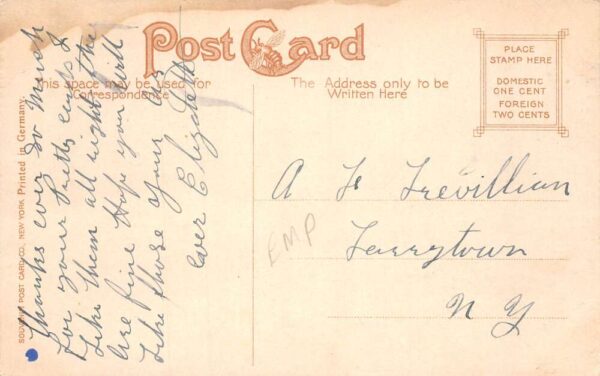 Post Card
This space may be used for
Correspondence
The Address only to be
Written Here
PLACE
STAMP HERE
DOMESTIC
ONE CENT
FOREIGN
TWO CENTS
SOUVENIR POST CARD CO., NEW YORK Printed in Germany.
Thanks ever so much
for your pretty cards I
like them all right they
are fine Hope you will
like those Your as
ever Elizabeth
A Trevillian
EMP
Tarrytown
N Y